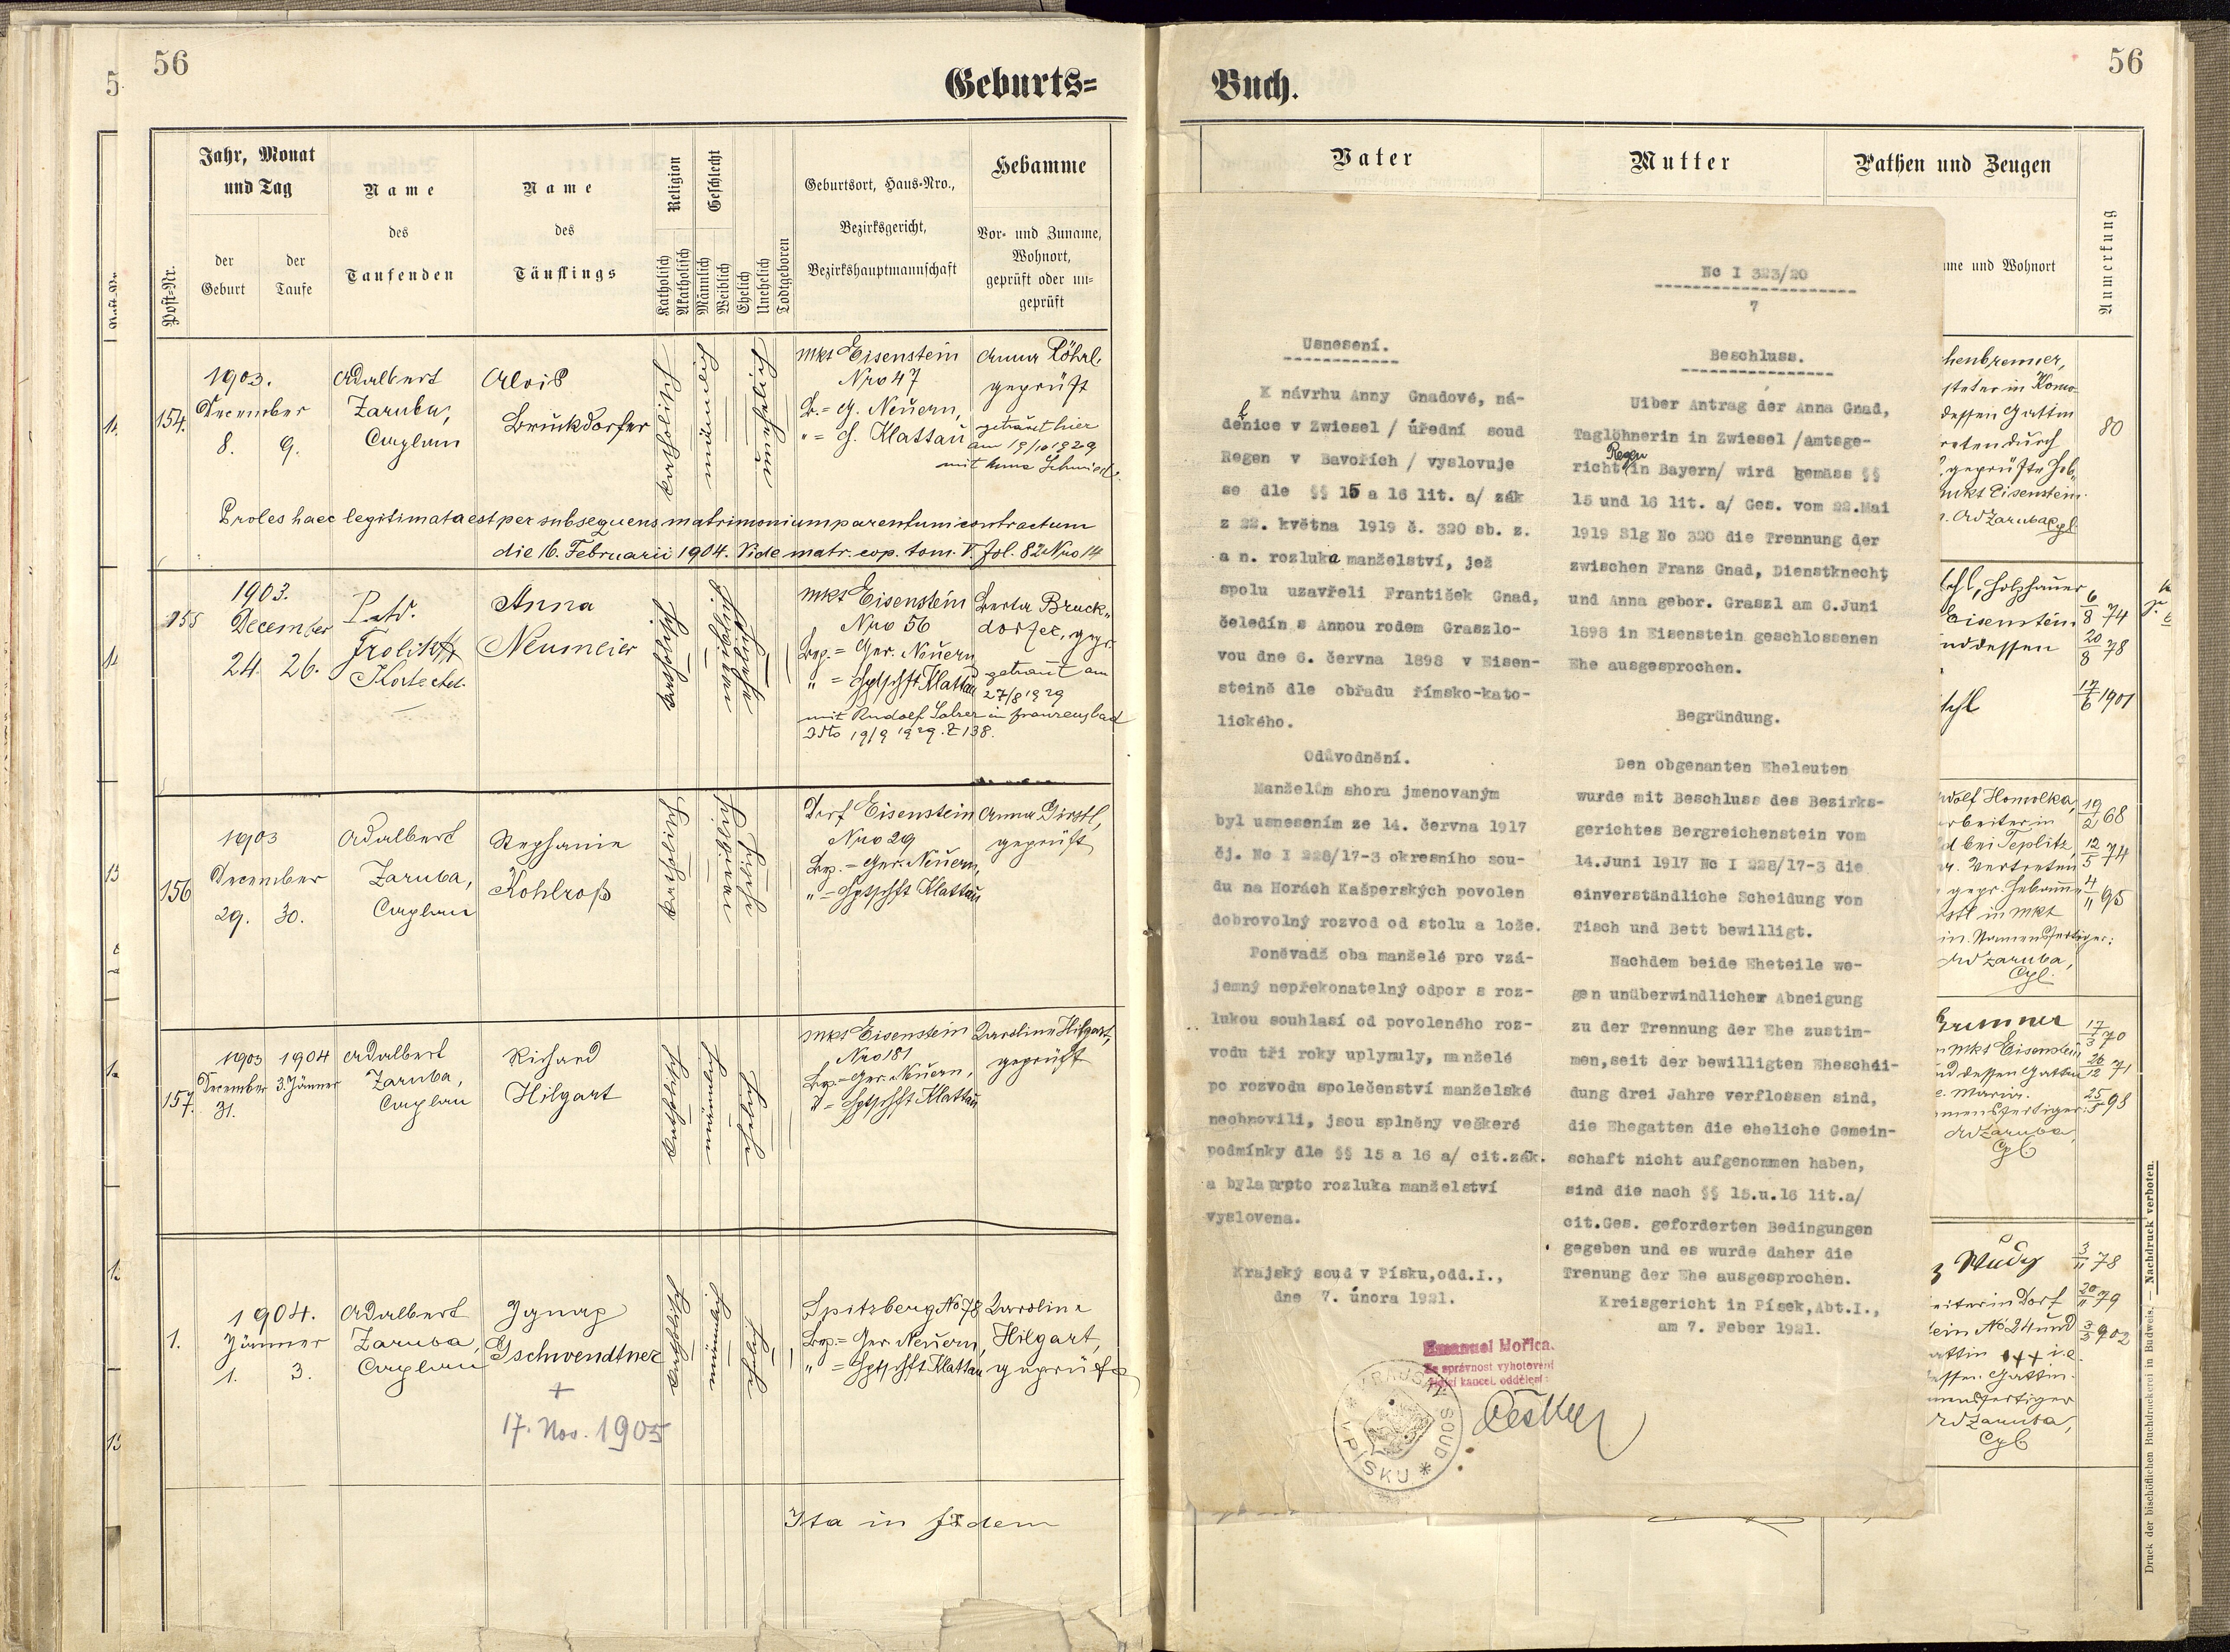 56
Geburts=
Jahr, Monat
und Tag
der
Geburt
der
Taufe
Post=Nr.
Name
des
Taufenden
Name
des
Täuflings
Religion
Katholisch
Akatholisch
Geschlecht
Männlich
Weiblich
Ehelich
Unehelich
Todtgeboren
Geburtsort, Haus=Nro.,
Bezirksgericht,
Bezirkshauptmannschaft
Hebamme
Vor= und Zuname,
Wohnort,
geprüft oder un=
geprüft
154.
1903.
December
8. 9.
Adalbert
Zaruba,
Caplan
Alois
Bruckdorfer
katholisch
männlich
unehelich
Mkt Eisenstein
Nro 47
B.= G. Neuern,
" = H. Klattau
Anna Röhrl,
geprüft
getraut hier
am 19/10 1929
mit Anna Schmied
Proles haec legitimata est per subsequens matrimonium parentum contractum
die 16. Februarii 1904. Vide matr. cop. tom. V. Fol. 82 Nro 14
155
1903.
December
24. 26.
Anna
Neumeier
katholisch
Mkt Eisenstein
Nro 56
Bez.= Ger. Neuern
" = Hptschft Klattau
Berta Bruck=
dorfer, gepr.
getraut am
27/8 1929
mit Rudolf in Franzensbad
19/9 1929. Z 138.
156
1903
December
29. 30.
Adalbert
Zaruba,
Caplan
Stephanie
Kohlroß
katholisch
weiblich
eheliche
Dorf Eisenstein
Nro 29
Bez.= Ger. Neuern,
" = Hptschft Klattau
Anna Girstl,
geprüft
157.
1903 1904
December 3. Jänner
31.
Adalbert
Zaruba,
Caplan
Richard
Hilgart
katholisch
männlich
eheliche
Mkt Eisenstein
Nro 181
Bez.= Ger. Neuern,
" = Hptschft Klattau
Karoline Hilgart,
geprüft
1.
1904.
Jänner
1. 3.
Adalbert
Zaruba,
Caplan
Ignaz
Gschwendtner
+
17. Nov. 1905
katholisch
männlich
eheliche
Spitzberg No 78
Bez.= Ger Neuern,
" = Hptschft Klattau
Karoline
Hilgart,
geprüft
Ita in fidem
56
Buch.
Vater
Mutter
Pathen und Zeugen
me und Wohnort
Anmerkung
Nc I 323/20
7
Usnesení.
K návrhu Anny Gnadové, ná-
denice v Zwiesel / úřední soud
Regen v Bavořích / vyslovuje
se dle §§ 15 a 16 lit. a/ zák
z 22. května 1919 č. 320 sb. z.
a n. rozluka manželství, jež
spolu uzavřeli František Gnad,
čeledín s Annou rodem Graszlo-
vou dne 6. června 1898 v Eisen-
steině dle obřadu římsko-kato-
lického.
Odůvodnění.
Manželům shora jmenovaným
byl usnesením ze 14. června 1917
čj. Nc I 228/17-3 okresního sou-
du na Horách Kašperských povolen
dobrovolný rozvod od stolu a lože.
Poněvadž oba manželé pro vzá-
jemný nepřekonatelný odpor s roz-
lukou souhlasí od povoleného roz-
vodu tři roky uplynuly, manželé
po rozvodu společenství manželské
neobnovili, jsou splněny veškeré
podmínky dle §§ 15 a 16 a/ cit.zák.
a byla proto rozluka manželství
vyslovena.
Krajský soud v Písku,odd.I.,
dne 7. února 1921.
Beschluss.
Uiber Antrag der Anna Gnad,
Taglöhnerin in Zwiesel /amtsge-
richt Regen in Bayern/ wird gemäss §§
15 und 16 lit. a/ Ges. vom 22.Mai
1919 Slg No 320 die Trennung der
zwischen Franz Gnad, Dienstknecht
und Anna gebor. Graszl am 6.Juni
1898 in Eisenstein geschlossenen
Ehe ausgesprochen.
Begründung.
Den obgenanten Eheleuten
wurde mit Beschluss des Bezirks-
gerichtes Bergreichenstein vom
14.Juni 1917 Nc I 228/17-3 die
einverständliche Scheidung von
Tisch und Bett bewilligt.
Nachdem beide Eheteile we-
gen unüberwindlicher Abneigung
zu der Trennung der Ehe zustim-
men,seit der bewilligten Eheschei-
dung drei Jahre verflossen sind,
die Ehegatten die eheliche Gemein-
schaft nicht aufgenommen haben,
sind die nach §§ 15.u.16 lit.a/
cit.Ges. geforderten Bedingungen
gegeben und es wurde daher die
Trenung der Ehe ausgesprochen.
Kreisgericht in Písek,Abt.I.,
am 7. Feber 1921.
Emanuel Mořica.
Za správnost vyhotovení
řídící kancel. oddělení:
KRAJSKÝ SOUD * V PÍSKU *
henbrenner,
dessen Gattin
reten durch
geprüfte Heb.
Mkt Eisenstein.
Ad Zaruba Cpl.
80
Holzhauer
Eisenstein
und dessen
6/8 74
20/8 78
17/6 1901
dolf Homolka,
rbeiter in
d bei Teplitz,
Vertreten
gepr. Hebamme
stl in Mkt
in. Namensfertiger:
Ad Zaruba,
Cpl.
19/2 68
12/5 74
4/11 95
Brunner
Mkt Eisenstein
und dessen Gattin
Maria.
mensfertiger:
Ad Zaruba,
Cpl
17/3 70
26/12 71
25/5 98
Wudy
eiter in Dorf
ein No 24 und
attin +++ i.e.
dessen Gattin.
mensfertiger
Ad Zaruba,
Cpl
3/11 78
20/11 79
3/3 902
Druck der bischöflichen Buchdruckerei in Budweis. — Nachdruck verboten.